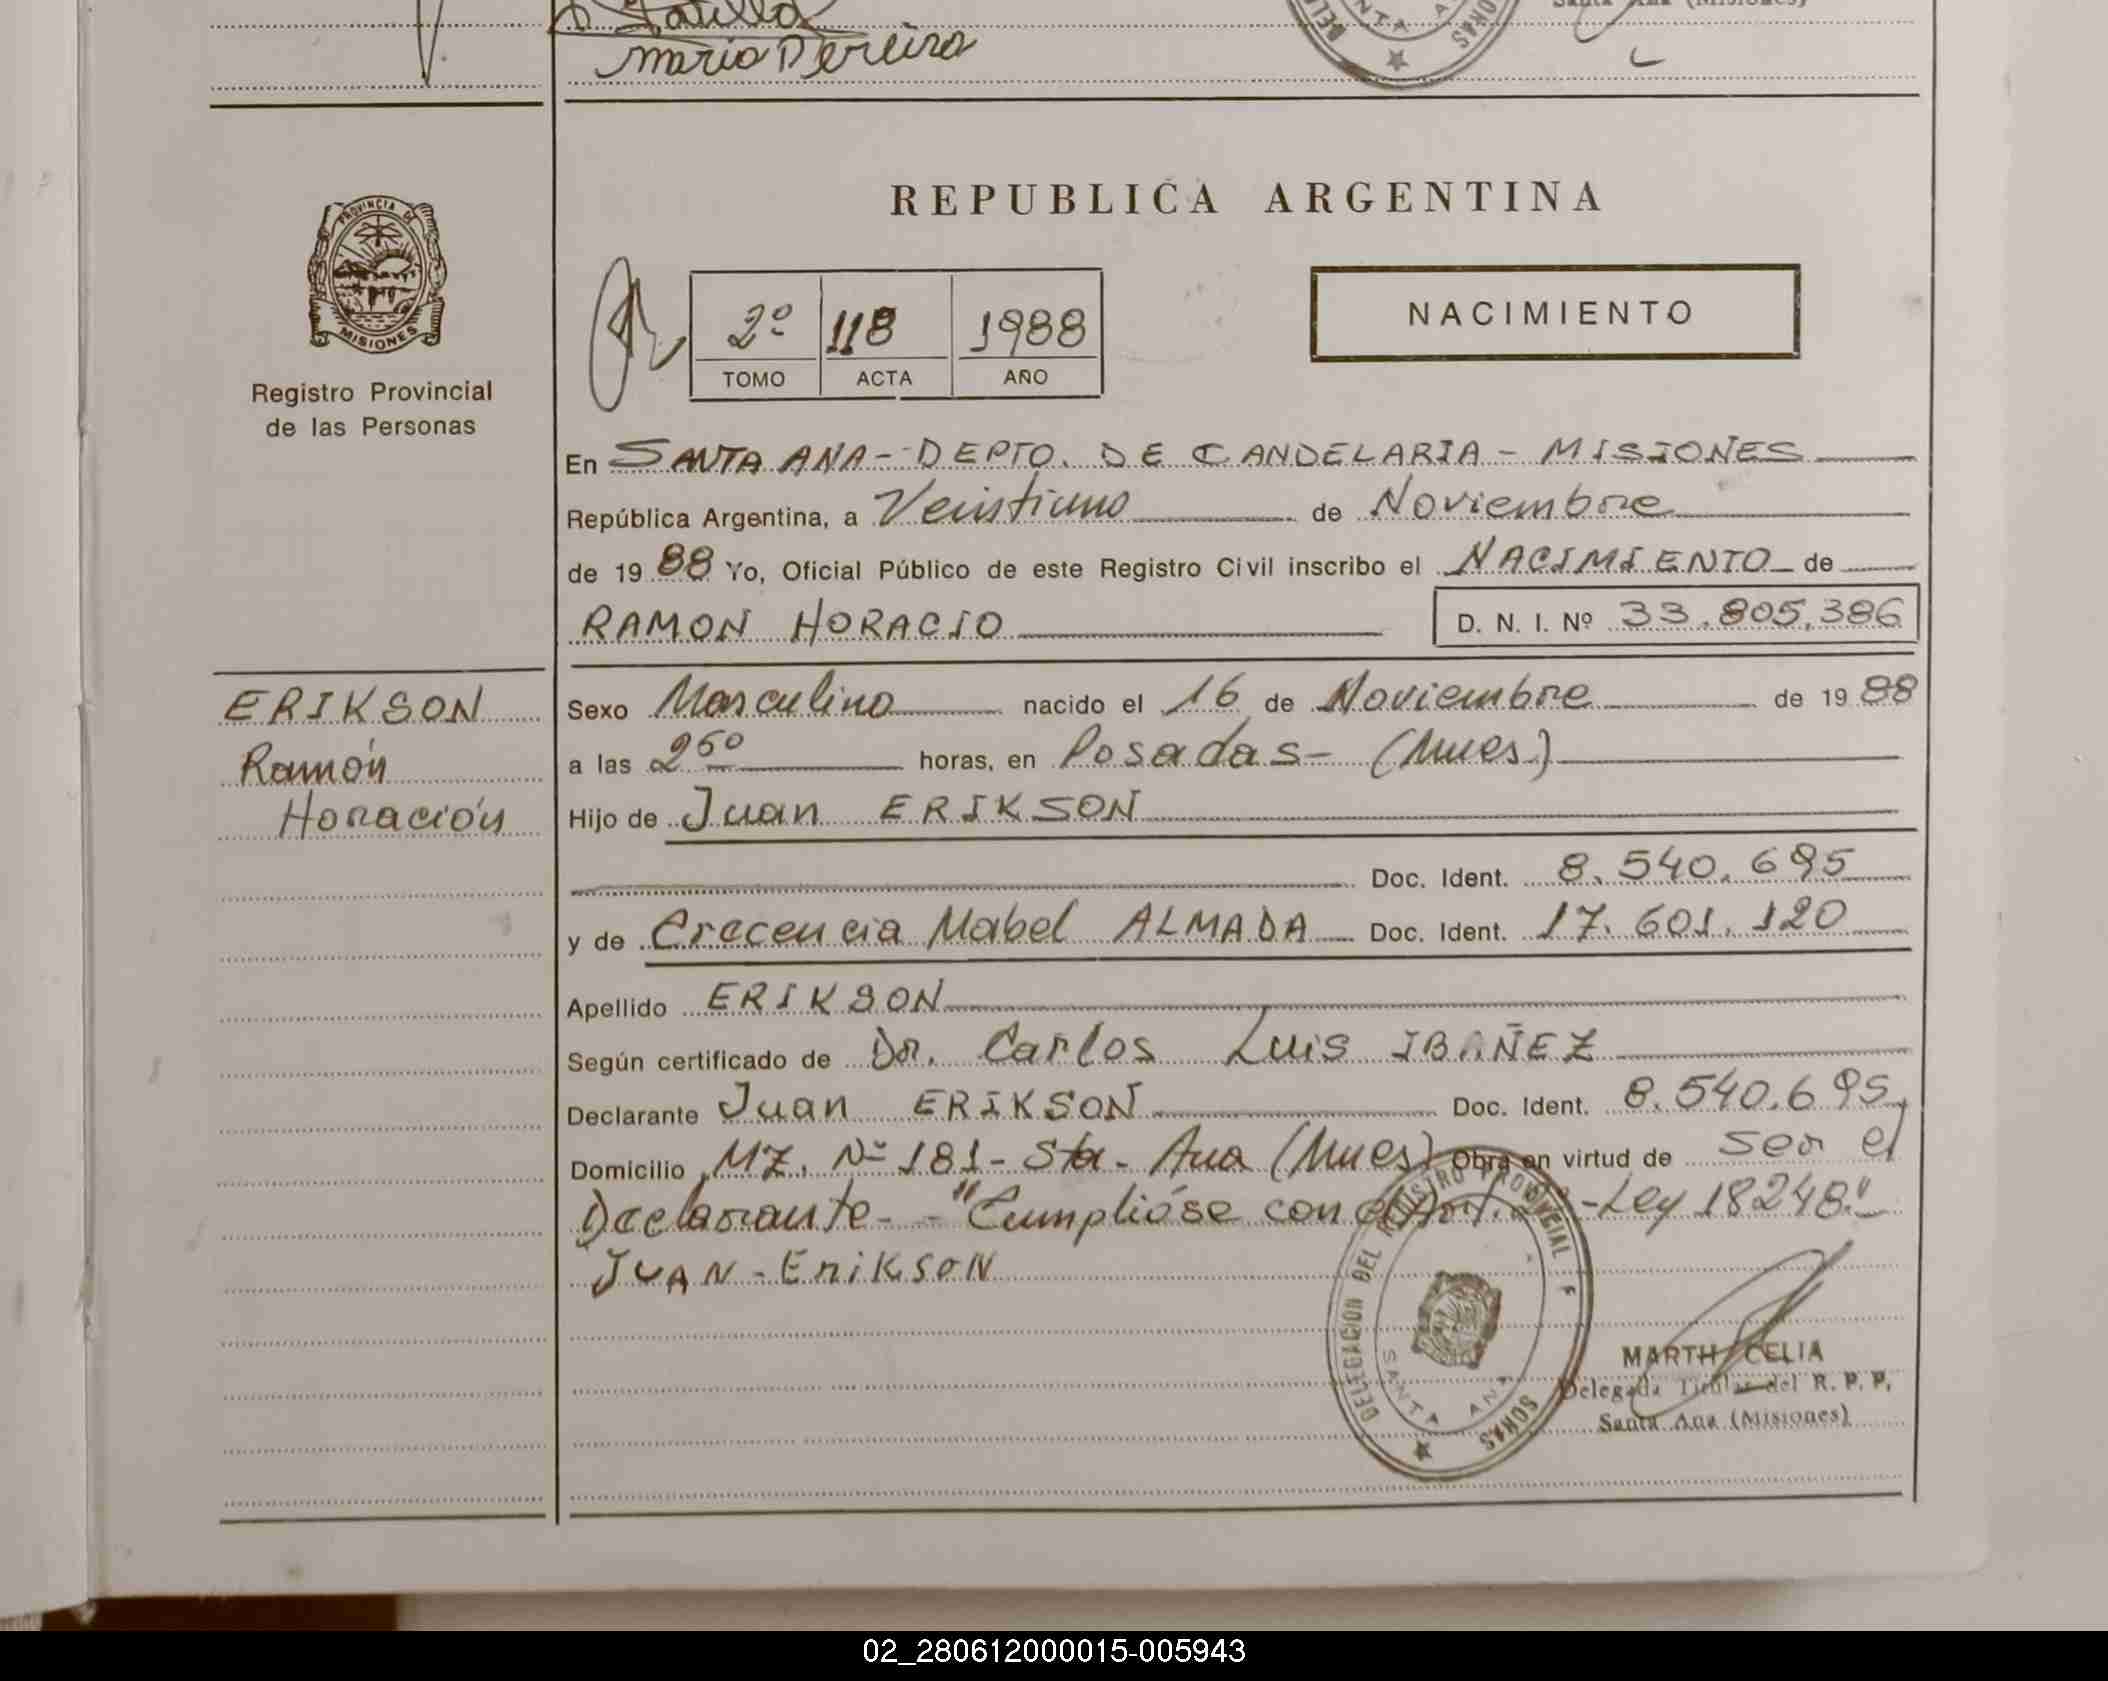 Mario Pereira
Santa Ana (Misiones)
REPUBLICA ARGENTINA
PROVINCIA DE
MISIONES
Registro Provincial
de las Personas
2º 118 1988
TOMO ACTA AÑO
NACIMIENTO
En SANTA ANA - DEPTO. DE CANDELARIA - MISIONES
República Argentina, a Veintiuno de Noviembre
de 19 88 Yo, Oficial Público de este Registro Civil inscribo el NACIMIENTO de
RAMON HORACIO D. N. I. Nº 33.805.386
ERIKSON
Ramón
Horación
Sexo Masculino nacido el 16 de Noviembre de 19 88
a las horas, en Posadas - (Mnes.)
Hijo de Juan ERIKSON
Doc. Ident. 8.540.695
y de Crecencia Mabel ALMADA Doc. Ident. 17.601.120
Apellido ERIKSON
Según certificado de Dr. Carlos Luis IBAÑEZ
Declarante Juan ERIKSON Doc. Ident. 8.540.695
Domicilio MZ. Nº 181 - Sta. Ana (Mnes) Obra en virtud de ser el
Declarante - - "Cumplióse con el Art. - Ley 18248."
JUAN - ERIKSON
DELEGACION DEL REGISTRO PROVINCIAL
SONAS
SANTA ANA
MARTH CELIA
Delegada Titular del R. P. P.
Santa Ana (Misiones)
02_280612000015-005943